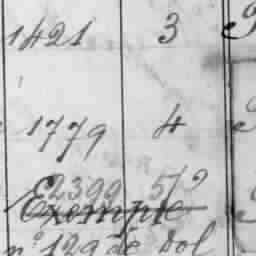 1421 3
1779 4
2399 5
Exemple
n° 129 de vol